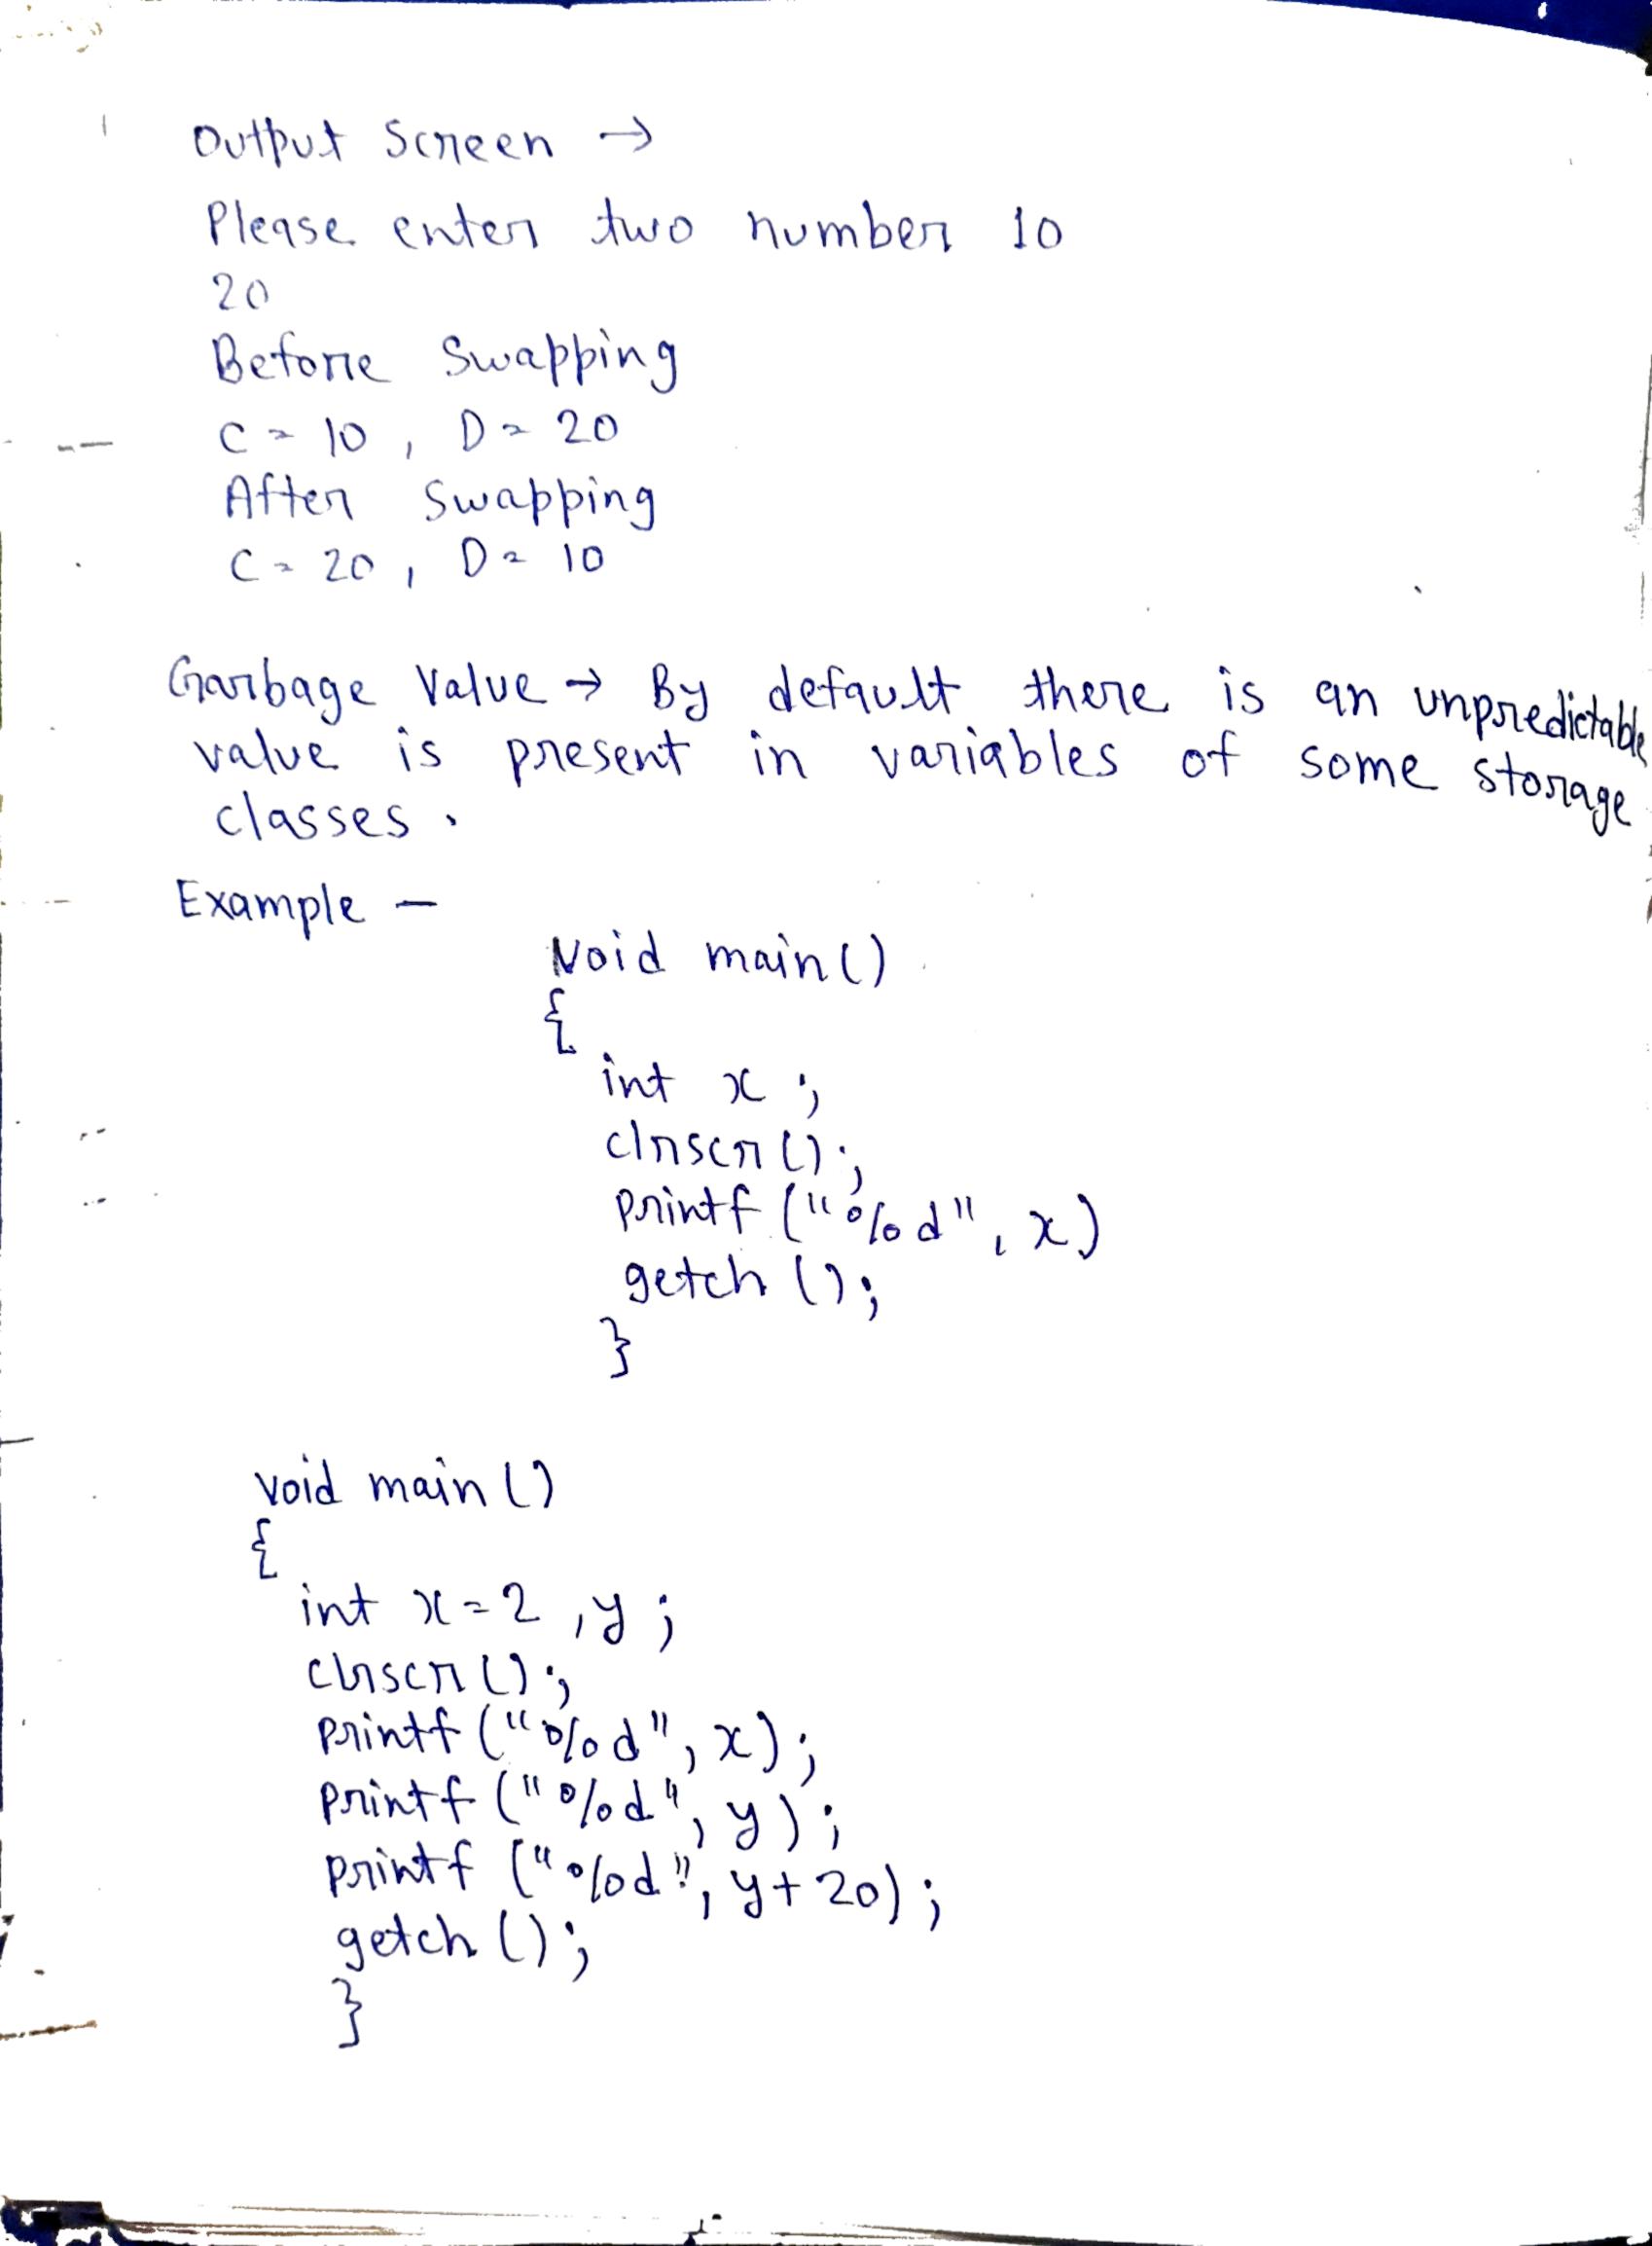 Output Screen →
Please enter two number 10
20
Before Swapping
C = 10 , D = 20
After Swapping
C = 20 , D = 10
Garbage Value → By default there is an unpredictable
value is present in variables of some storage
classes .
Example —
Void main()
{
int x ;
clrscr();
Printf ("%d", x)
getch ();
}
void main ()
{
int x = 2 , y ;
clrscr();
Printf ("%d", x);
Printf ("%d", y);
Printf ("%d", y + 20);
getch ();
}